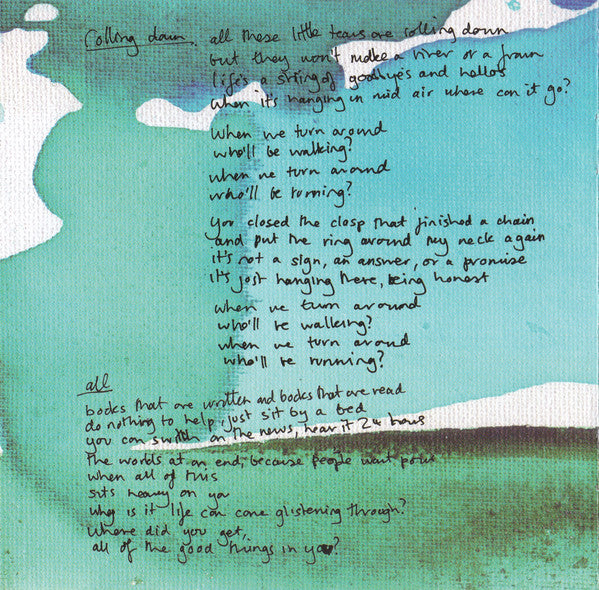 Rolling down. all these little tears are rolling down
but they won't make a river or a frown
life's a string of goodbyes and hellos
when it's hanging in mid air where can it go?
When we turn around
who'll be walking?
when we turn around
who'll be running?
You closed the clasp that finished a chain
and put the ring around my neck again
it's not a sign, an answer, or a promise
it's just hanging there, being honest
when we turn around
who'll be walking?
when we turn around
who'll be running?
all
books that are written and books that are read
do nothing to help, just sit by a bed
you can switch on the news, hear it 24 hours
The worlds at an end, because people want power
when all of this
sits heavy on you
why is it life can come glistening through?
Where did you get,
all of the good things in you?